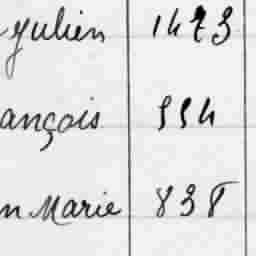 Julien 1473
ançois 554
n Marie 838